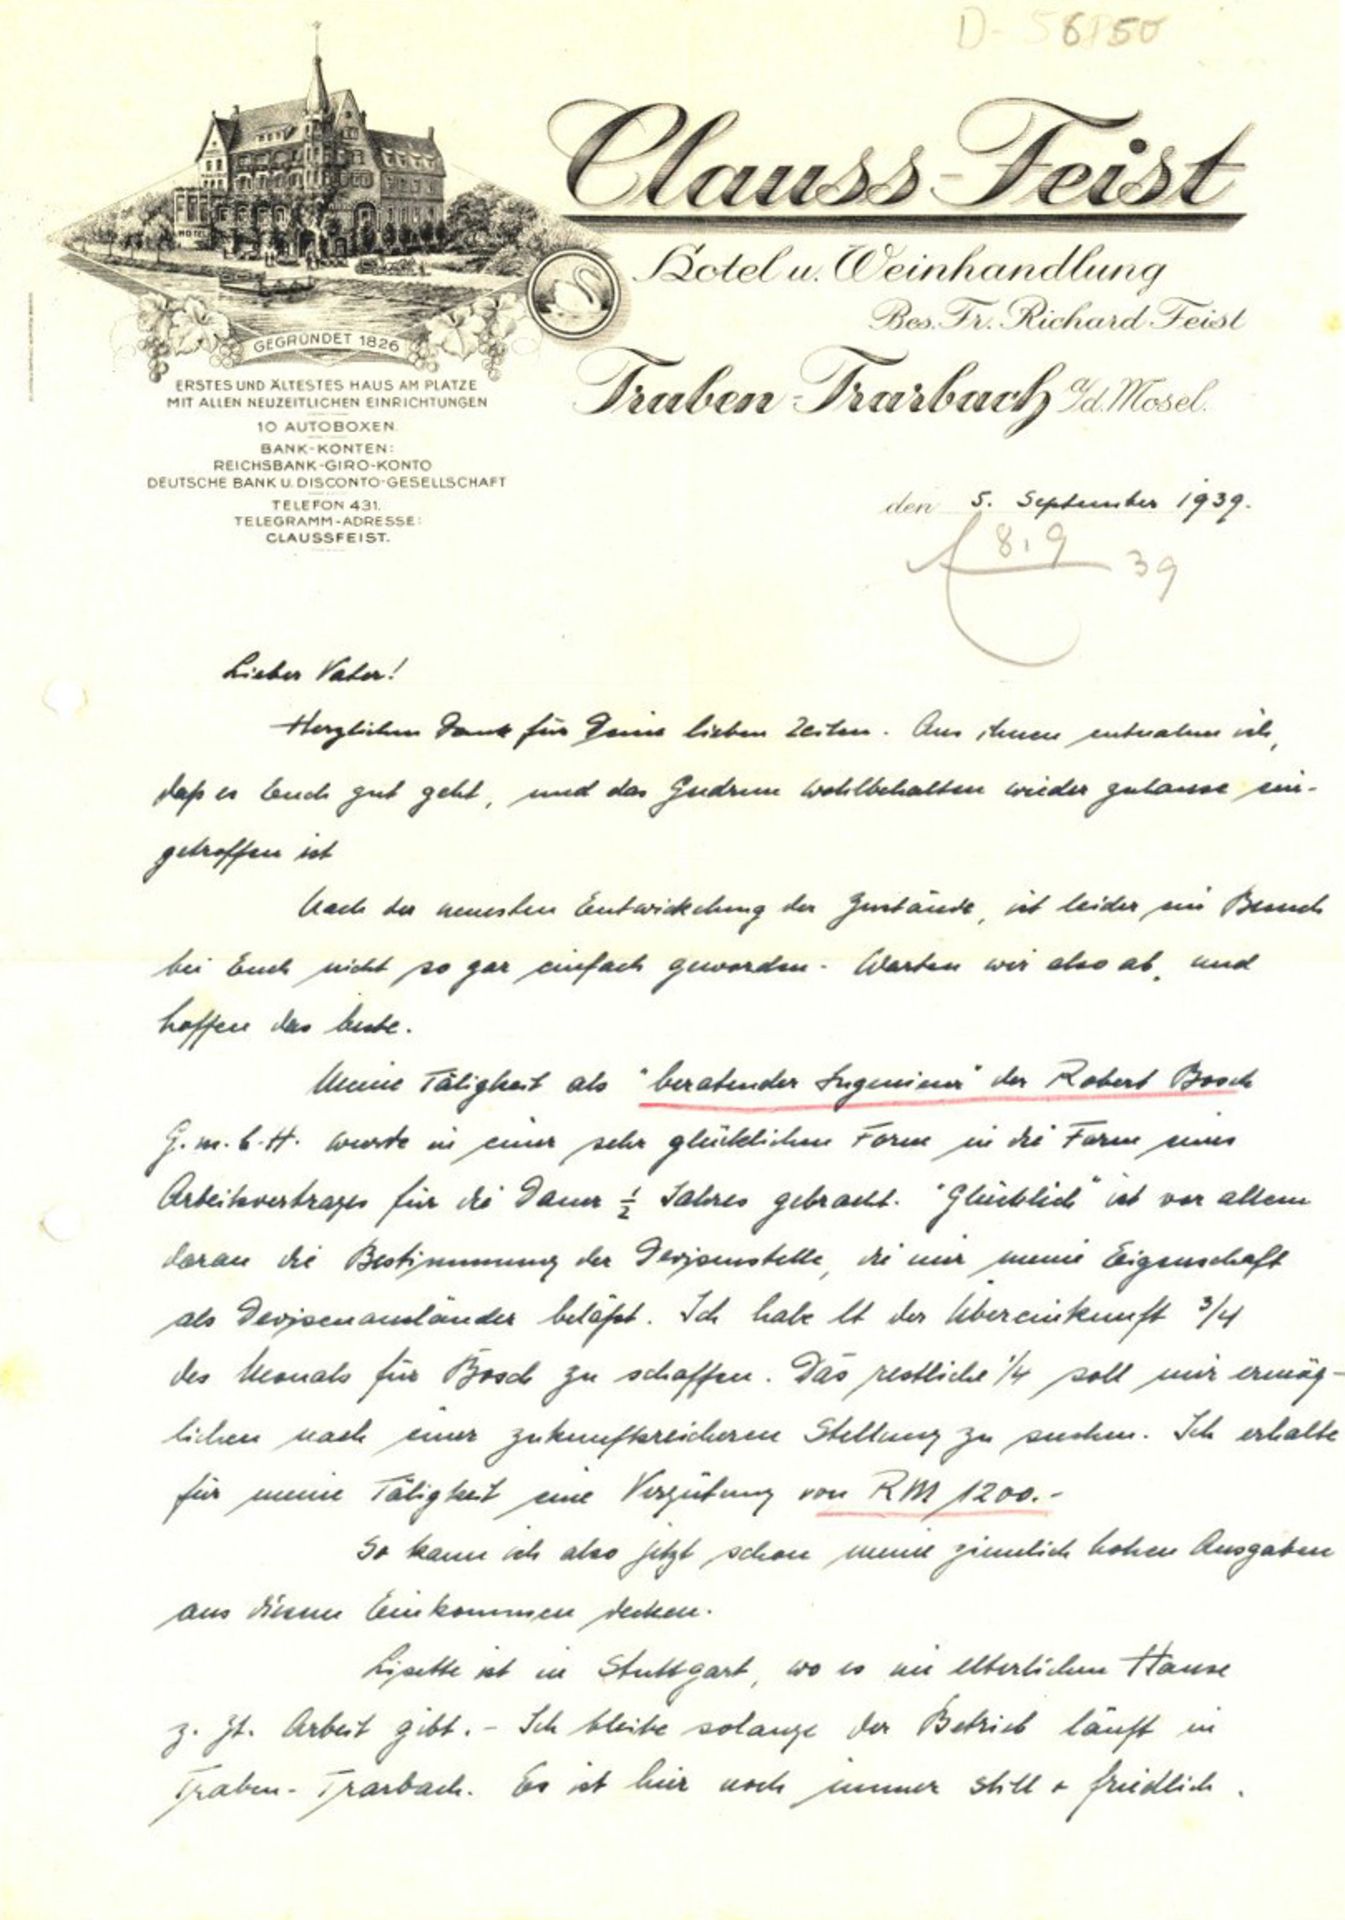 D-56150
Clauss-Feist
Hotel u. Weinhandlung
Bes. Fr. Richard Feist
Traben-Trarbach a/d. Mosel.
HOTEL
GEGRÜNDET 1826
ERSTES UND ÄLTESTES HAUS AM PLATZE
MIT ALLEN NEUZEITLICHEN EINRICHTUNGEN
10 AUTOBOXEN
BANK-KONTEN:
REICHSBANK-GIRO-KONTO
DEUTSCHE BANK U. DISCONTO-GESELLSCHAFT
TELEFON 431.
TELEGRAMM-ADRESSE:
CLAUSSFEIST.
den 5. September 1939.
8.9 39
Lieber Vater!
Herzlichen Dank für Deine lieben Zeilen. Aus ihnen entnahm ich,
daß es Euch gut geht, und das Gudrun wohlbehalten wieder zuhause ein-
getroffen ist
Nach der neuesten Entwickelung der Zustände, ist leider ein Besuch
bei Euch nicht so gar einfach geworden. Warten wir also ab, und
hoffen das beste.
Meine Tätigkeit als "beratender Ingenieur" der Robert Bosch
G.m.b.H. wurde in einer sehr glücklichen Form in die Form eines
Arbeitsvertrages für die Dauer 1/2 Jahres gebracht. "Glücklich" ist vor allem
daran die Bestimmung der Devisenstelle, die mir meine Eigenschaft
als Devisenausländer beläßt. Ich habe lt der Übereinkunft 3/4
des Monats für Bosch zu schaffen. Das restliche 1/4 soll mir ermög-
lichen nach einer zukunftsreicheren Stellung zu suchen. Ich erhalte
für meine Tätigkeit eine Vergütung von RM 1200.-
So kann ich also jetzt schon meine ziemlich hohen Ausgaben
aus diesem Einkommen decken.
Lisette ist in Stuttgart, wo es im elterlichen Hause
z. Zt. Arbeit gibt. - Ich bleibe solange der Betrieb läuft in
Traben-Trarbach. Es ist hier noch immer still + friedlich.